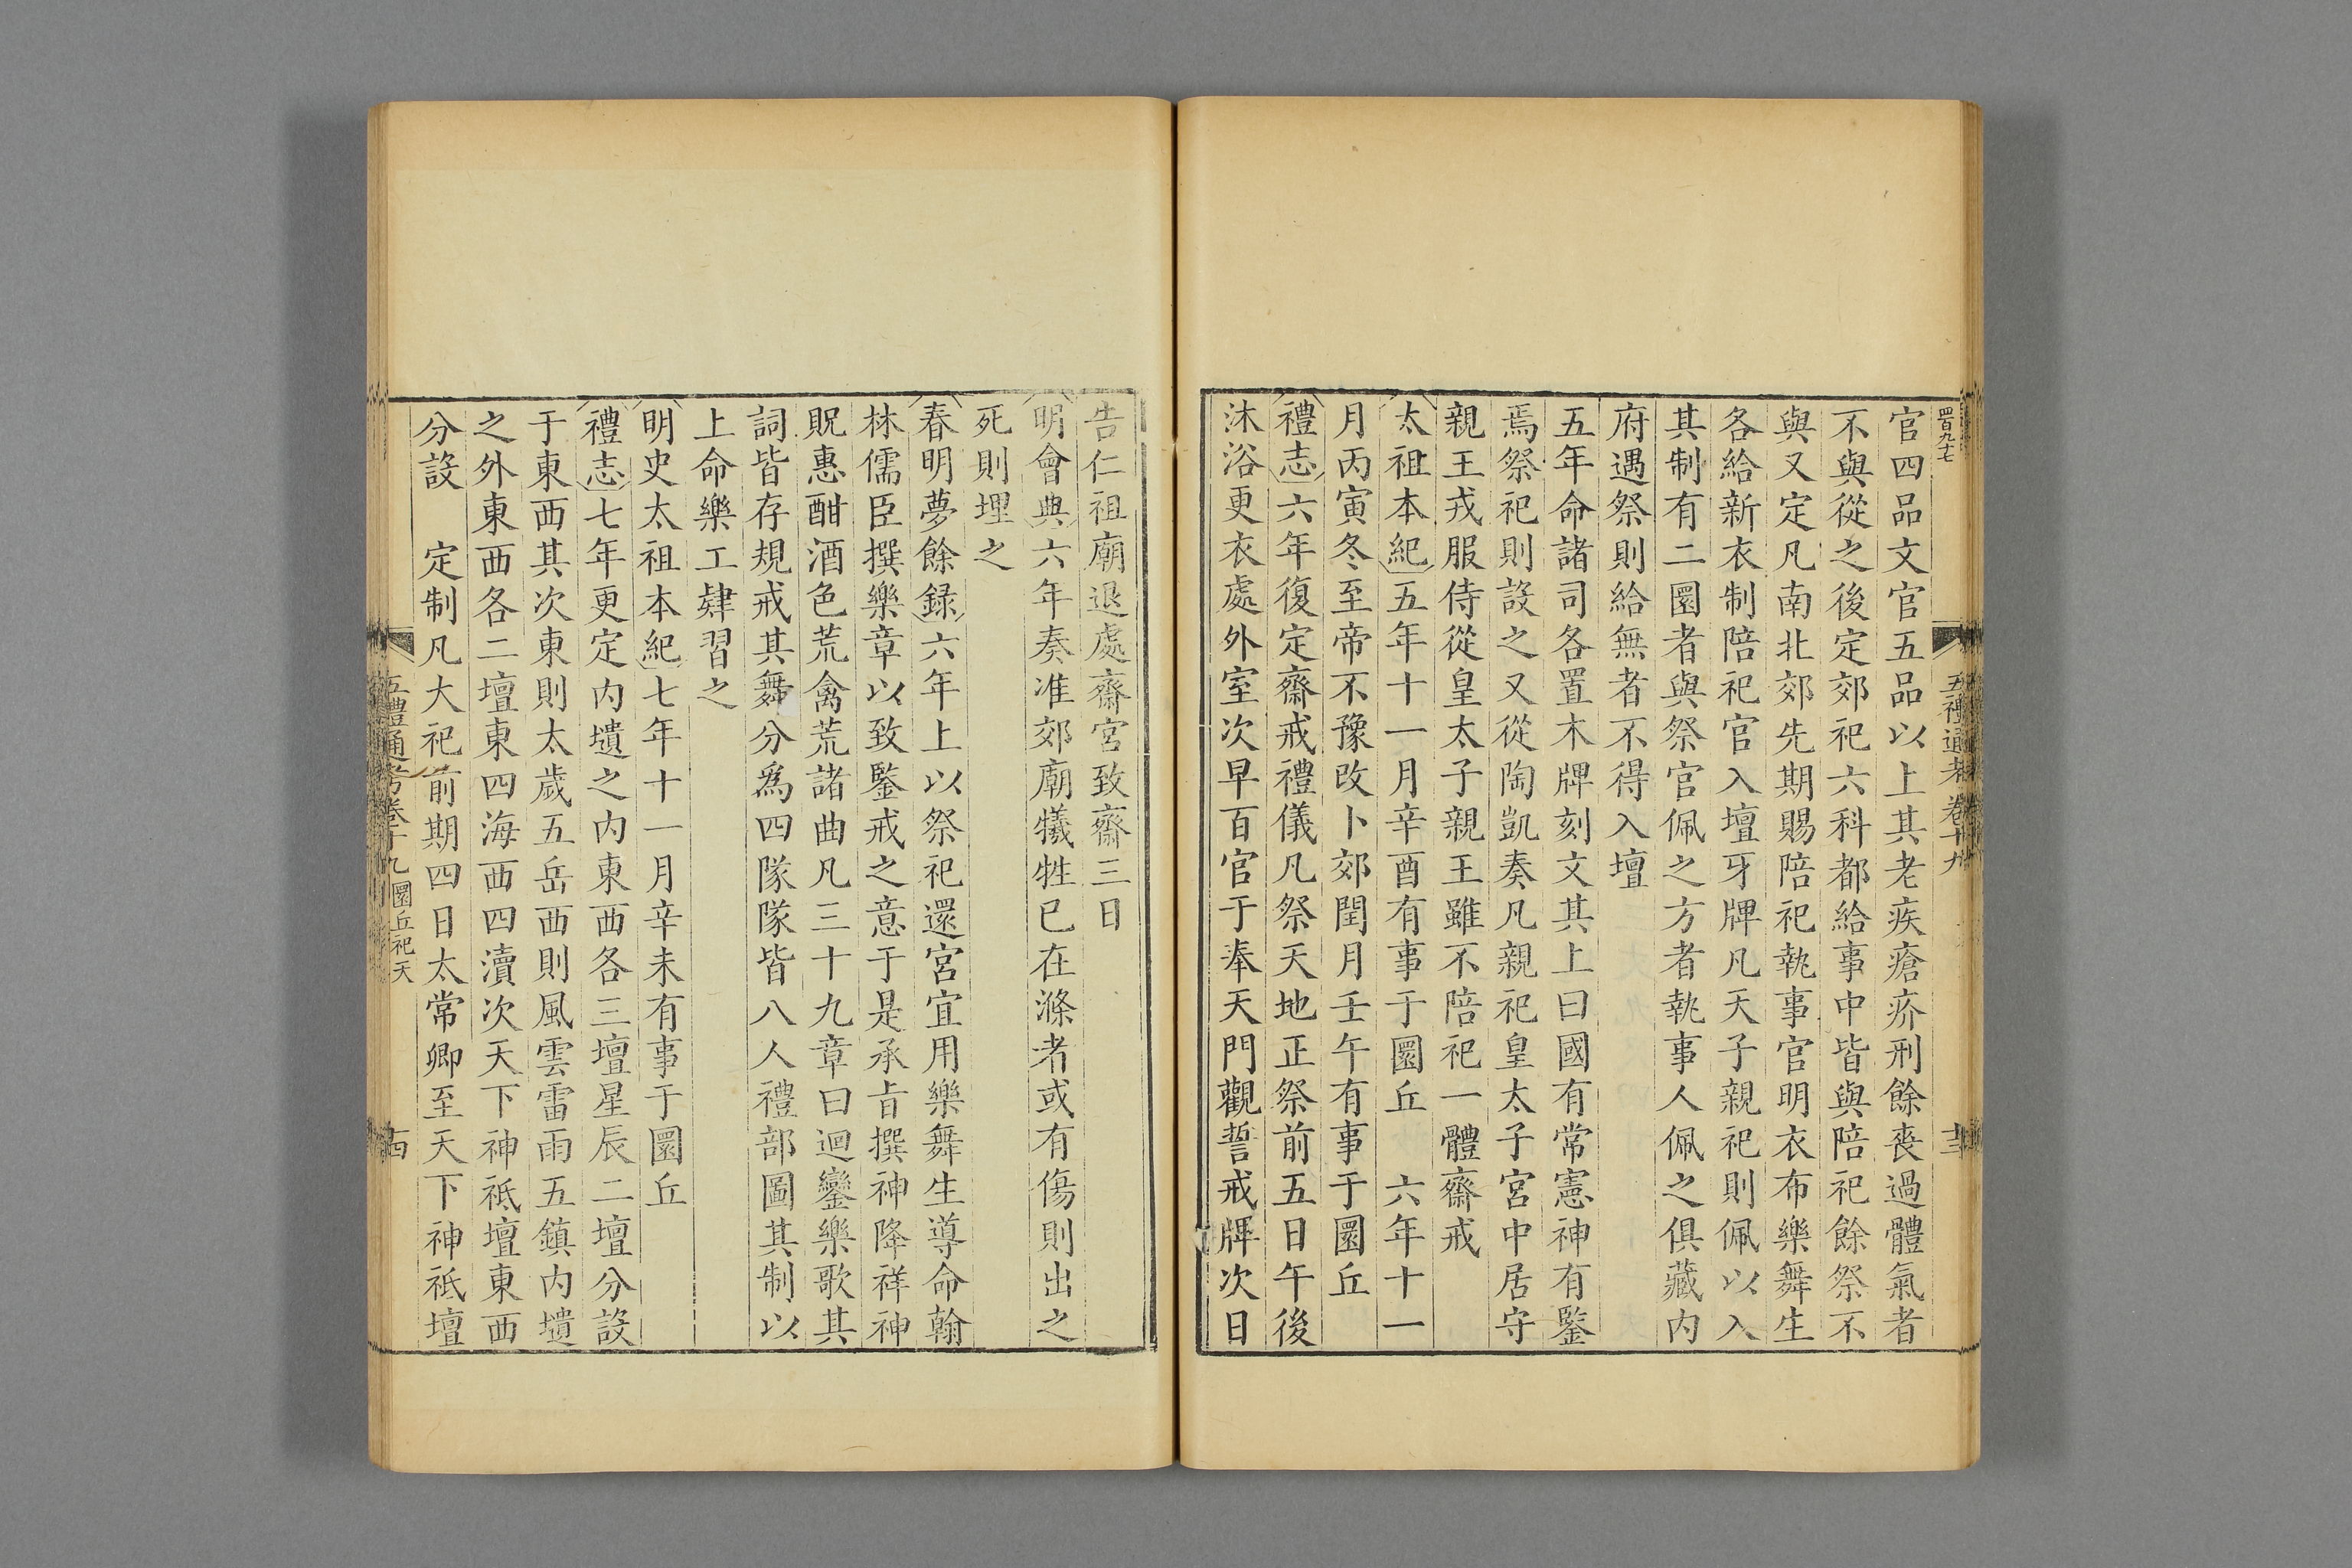 官四品文官五品以上其老疾瘡疥刑餘喪過體氣者
不與從之後定郊祀六科都給事中皆與陪祀餘祭不
與又定凡南北郊先期賜陪祀執事官明衣布樂舞生
各給新衣制陪祀官入壇牙牌凡天子親祀則佩以入
其制有二圜者與祭官佩之方者執事人佩之俱藏内
府遇祭則給無者不得入壇
五年命諸司各置木牌刻文其上曰國有常憲神有鑒
焉祭祀則設之又從陶凱奏凡親祀皇太子宮中居守
親王戎服侍從皇太子親王雖不陪祀一體齋戒
太祖本紀五年十一月辛酉有事于圜丘　六年十一
月丙寅冬至帝不豫改卜郊閏月壬午有事于圜丘
禮志六年復定齋戒禮儀凡祭天地正祭前五日午後
沐浴更衣處外室次早百官于奉天門觀誓戒牌次日
告仁祖廟退處齋宮致齋三日
明會典六年奏准郊廟犧牲已在滌者或有傷則出之
死則埋之
春明夢餘録六年上以祭祀還宮宜用樂舞生導命翰
林儒臣撰樂章以致鑒戒之意于是承旨撰神降祥神
貺惠酣酒色荒禽荒諸曲凡三十九章曰迴鑾樂歌其
詞皆存規戒其舞分爲四隊隊皆八人禮部圖其制以
上命樂工肄習之
明史太祖本紀七年十一月辛未有事于圜丘
禮志七年更定内壝之内東西各三壇星辰二壇分設
于東西其次東則太歲五岳西則風雲雷雨五鎮内壝
之外東西各二壇東四海西四瀆次天下神祇壇東西
分設　定制凡大祀前期四日太常卿至天下神祇壇
五禮通考卷十九 圜丘祀天